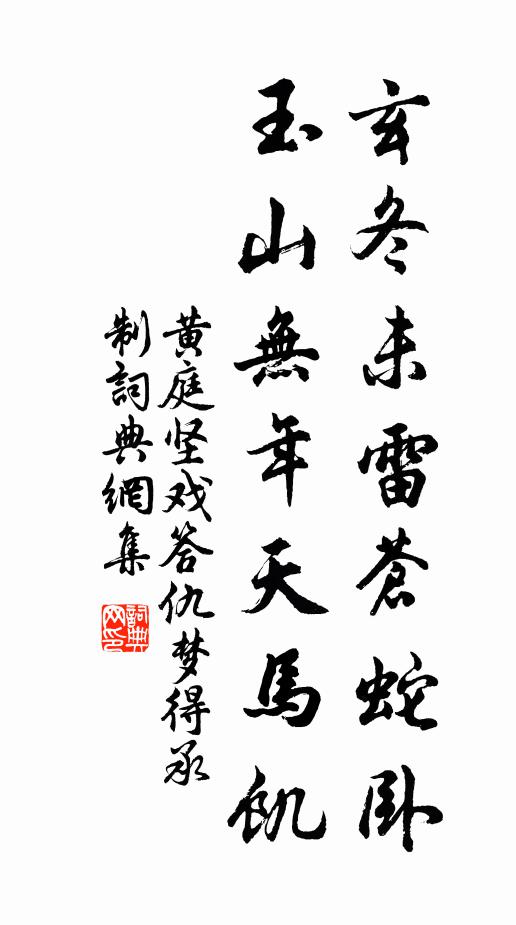 玄冬未雷蒼蛇卧
玉山無年天馬飢
黄庭坚戏答仇梦得承
制詞典網集
詞典网印